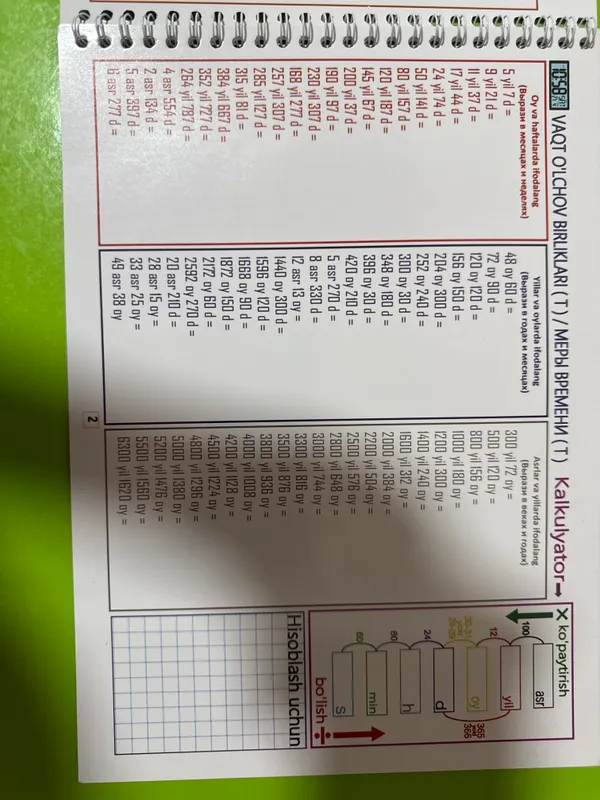 VAQT O'LCHOV BIRLIKLARI ( T ) / МЕРЫ ВРЕМЕНИ ( T ) Kalkulyator→
Oy va haftalarda ifodalang
(Вырази в месяцах и неделях)
5 yil 7 d =
9 yil 27 d =
11 yil 37 d =
17 yil 44 d =
24 yil 74 d =
50 yil 141 d =
80 yil 157 d =
120 yil 187 d =
145 yil 67 d =
200 yil 37 d =
190 yil 97 d =
230 yil 307 d =
168 yil 277 d =
257 yil 307 d =
285 yil 177 d =
315 yil 81 d =
384 yil 667 d =
352 yil 727 d =
264 yil 787 d =
4 asr 554 d =
2 asr 134 d =
5 asr 397 d =
6 asr 277 d =
Yillar va oylarda ifodalang
(Вырази в годах и месяцах)
48 oy 60 d =
72 oy 90 d =
120 oy 120 d =
156 oy 150 d =
204 oy 300 d =
252 oy 240 d =
300 oy 30 d =
348 oy 180 d =
396 oy 30 d =
420 oy 210 d =
5 asr 270 d =
8 asr 330 d =
12 asr 13 oy =
1440 oy 300 d =
1596 oy 120 d =
1668 oy 90 d =
1872 oy 150 d =
2172 oy 60 d =
2592 oy 270 d =
20 asr 210 d =
28 asr 15 oy =
33 asr 25 oy =
49 asr 38 oy
Asrlar va yillarda ifodalang
(Вырази в веках и годах)
300 yil 72 oy =
500 yil 120 oy =
800 yil 156 oy =
1000 yil 180 oy =
1200 yil 300 oy =
1400 yil 240 oy =
1600 yil 312 oy =
2000 yil 384 oy =
2200 yil 504 oy =
2500 yil 576 oy =
2800 yil 648 oy =
3000 yil 744 oy =
3300 yil 816 oy =
3500 yil 876 oy =
3800 yil 936 oy =
4000 yil 1008 oy =
4200 yil 1128 oy =
4500 yil 1224 oy =
4800 yil 1296 oy =
5000 yil 1380 oy =
5200 yil 1476 oy =
5500 yil 1560 oy =
6300 yil 1620 oy =
× ko'paytirish
asr
100
yil
12
oy
365
yoki
366
d
24
h
60
min
60
s
bo'lish ÷
Hisoblash uchun
2